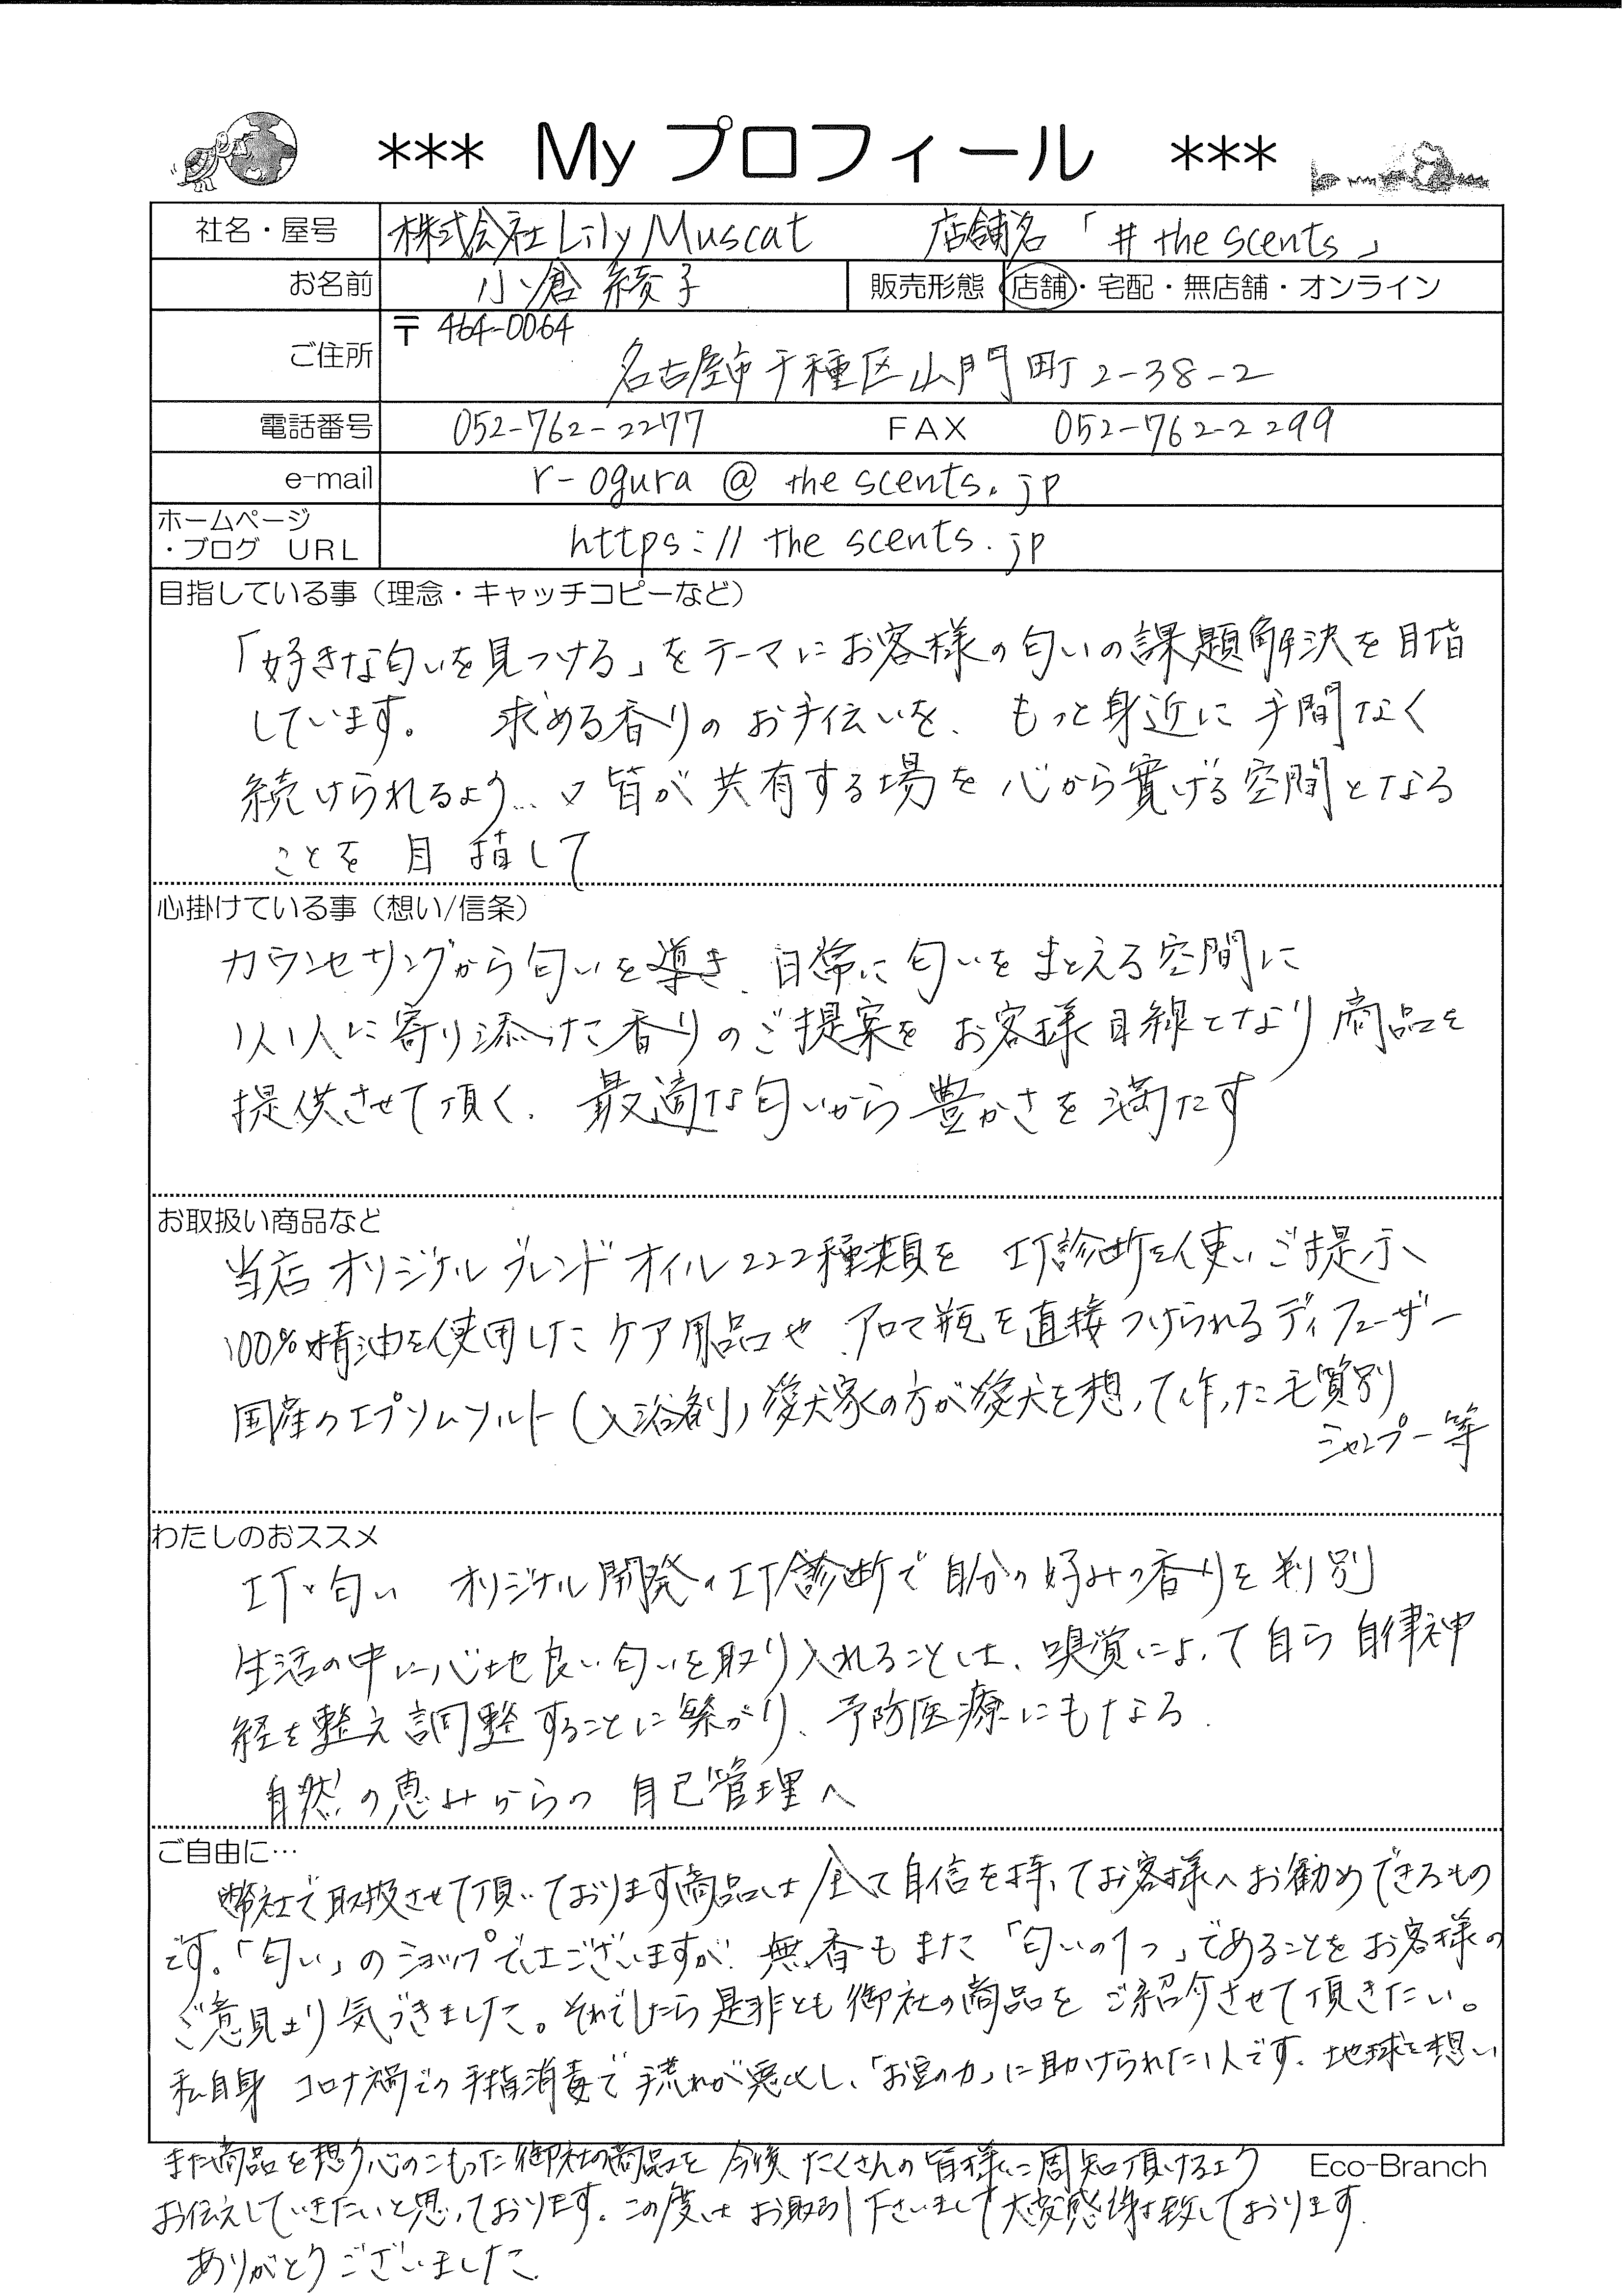 *** My プロフィール ***
社名・屋号 株式会社 Lily Muscat 店舗名 「# the scents」
お名前 小倉 綾子 販売形態 店舗・宅配・無店舗・オンライン
〒 464-0064
ご住所 名古屋市千種区山門町 2-38-2
電話番号 052-762-2277 FAX 052-762-2299
e-mail r-ogura @ the scents.jp
ホームページ
・ブログ URL https://the scents.jp
目指している事（理念・キャッチコピーなど）
「好きな匂いを見つける」をテーマにお客様の匂いの課題解決を目指
しています。 求める香りのお手伝いを、もっと身近に手間なく
続けられるよう… 又皆が共有する場を心から寛げる空間となる
ことを目指して
心掛けている事（想い/信条）
カウンセリングから匂いを導き、日常に匂いをまとえる空間に
1人1人に寄り添った香りのご提案をお客様目線となり商品を
提供させて頂く、最適な匂いから豊かさを満たす
お取扱い商品など
当店オリジナルブレンドオイル222種類を IT診断を使いご提示、
100%精油を使用したケア用品や アロマ瓶を直接つけられるディフューザー
国産のエプソムソルト（入浴剤）愛犬家の方が愛犬を想って作った毛質別
シャンプー等
わたしのおススメ
IT×匂い オリジナル開発のIT診断で自分の好みの香りを判別
生活の中に心地良い匂いを取り入れることは、嗅覚によって自ら自律神
経を整え調整することに繋がり、予防医療にもなる。
自然の恵みからの 自己管理へ
ご自由に…
弊社で取扱させて頂いております商品は全て自信を持ってお客様へお勧めできるもの
です。「匂い」のショップではございますが、無香もまた「匂いの1つ」であることをお客様の
ご意見より気づきました。それでしたら是非とも御社の商品をご紹介させて頂きたい。
私自身 コロナ禍での手指消毒で手荒れが悪化し、「お豆の力」に助けられた1人です。地球を想い
また商品を想う心のこもった御社の商品を今後たくさんの皆様に周知頂けるよう Eco-Branch
お伝えしていきたいと思っております。この度はお取引下さいまして大変感謝致しております。
ありがとうございました